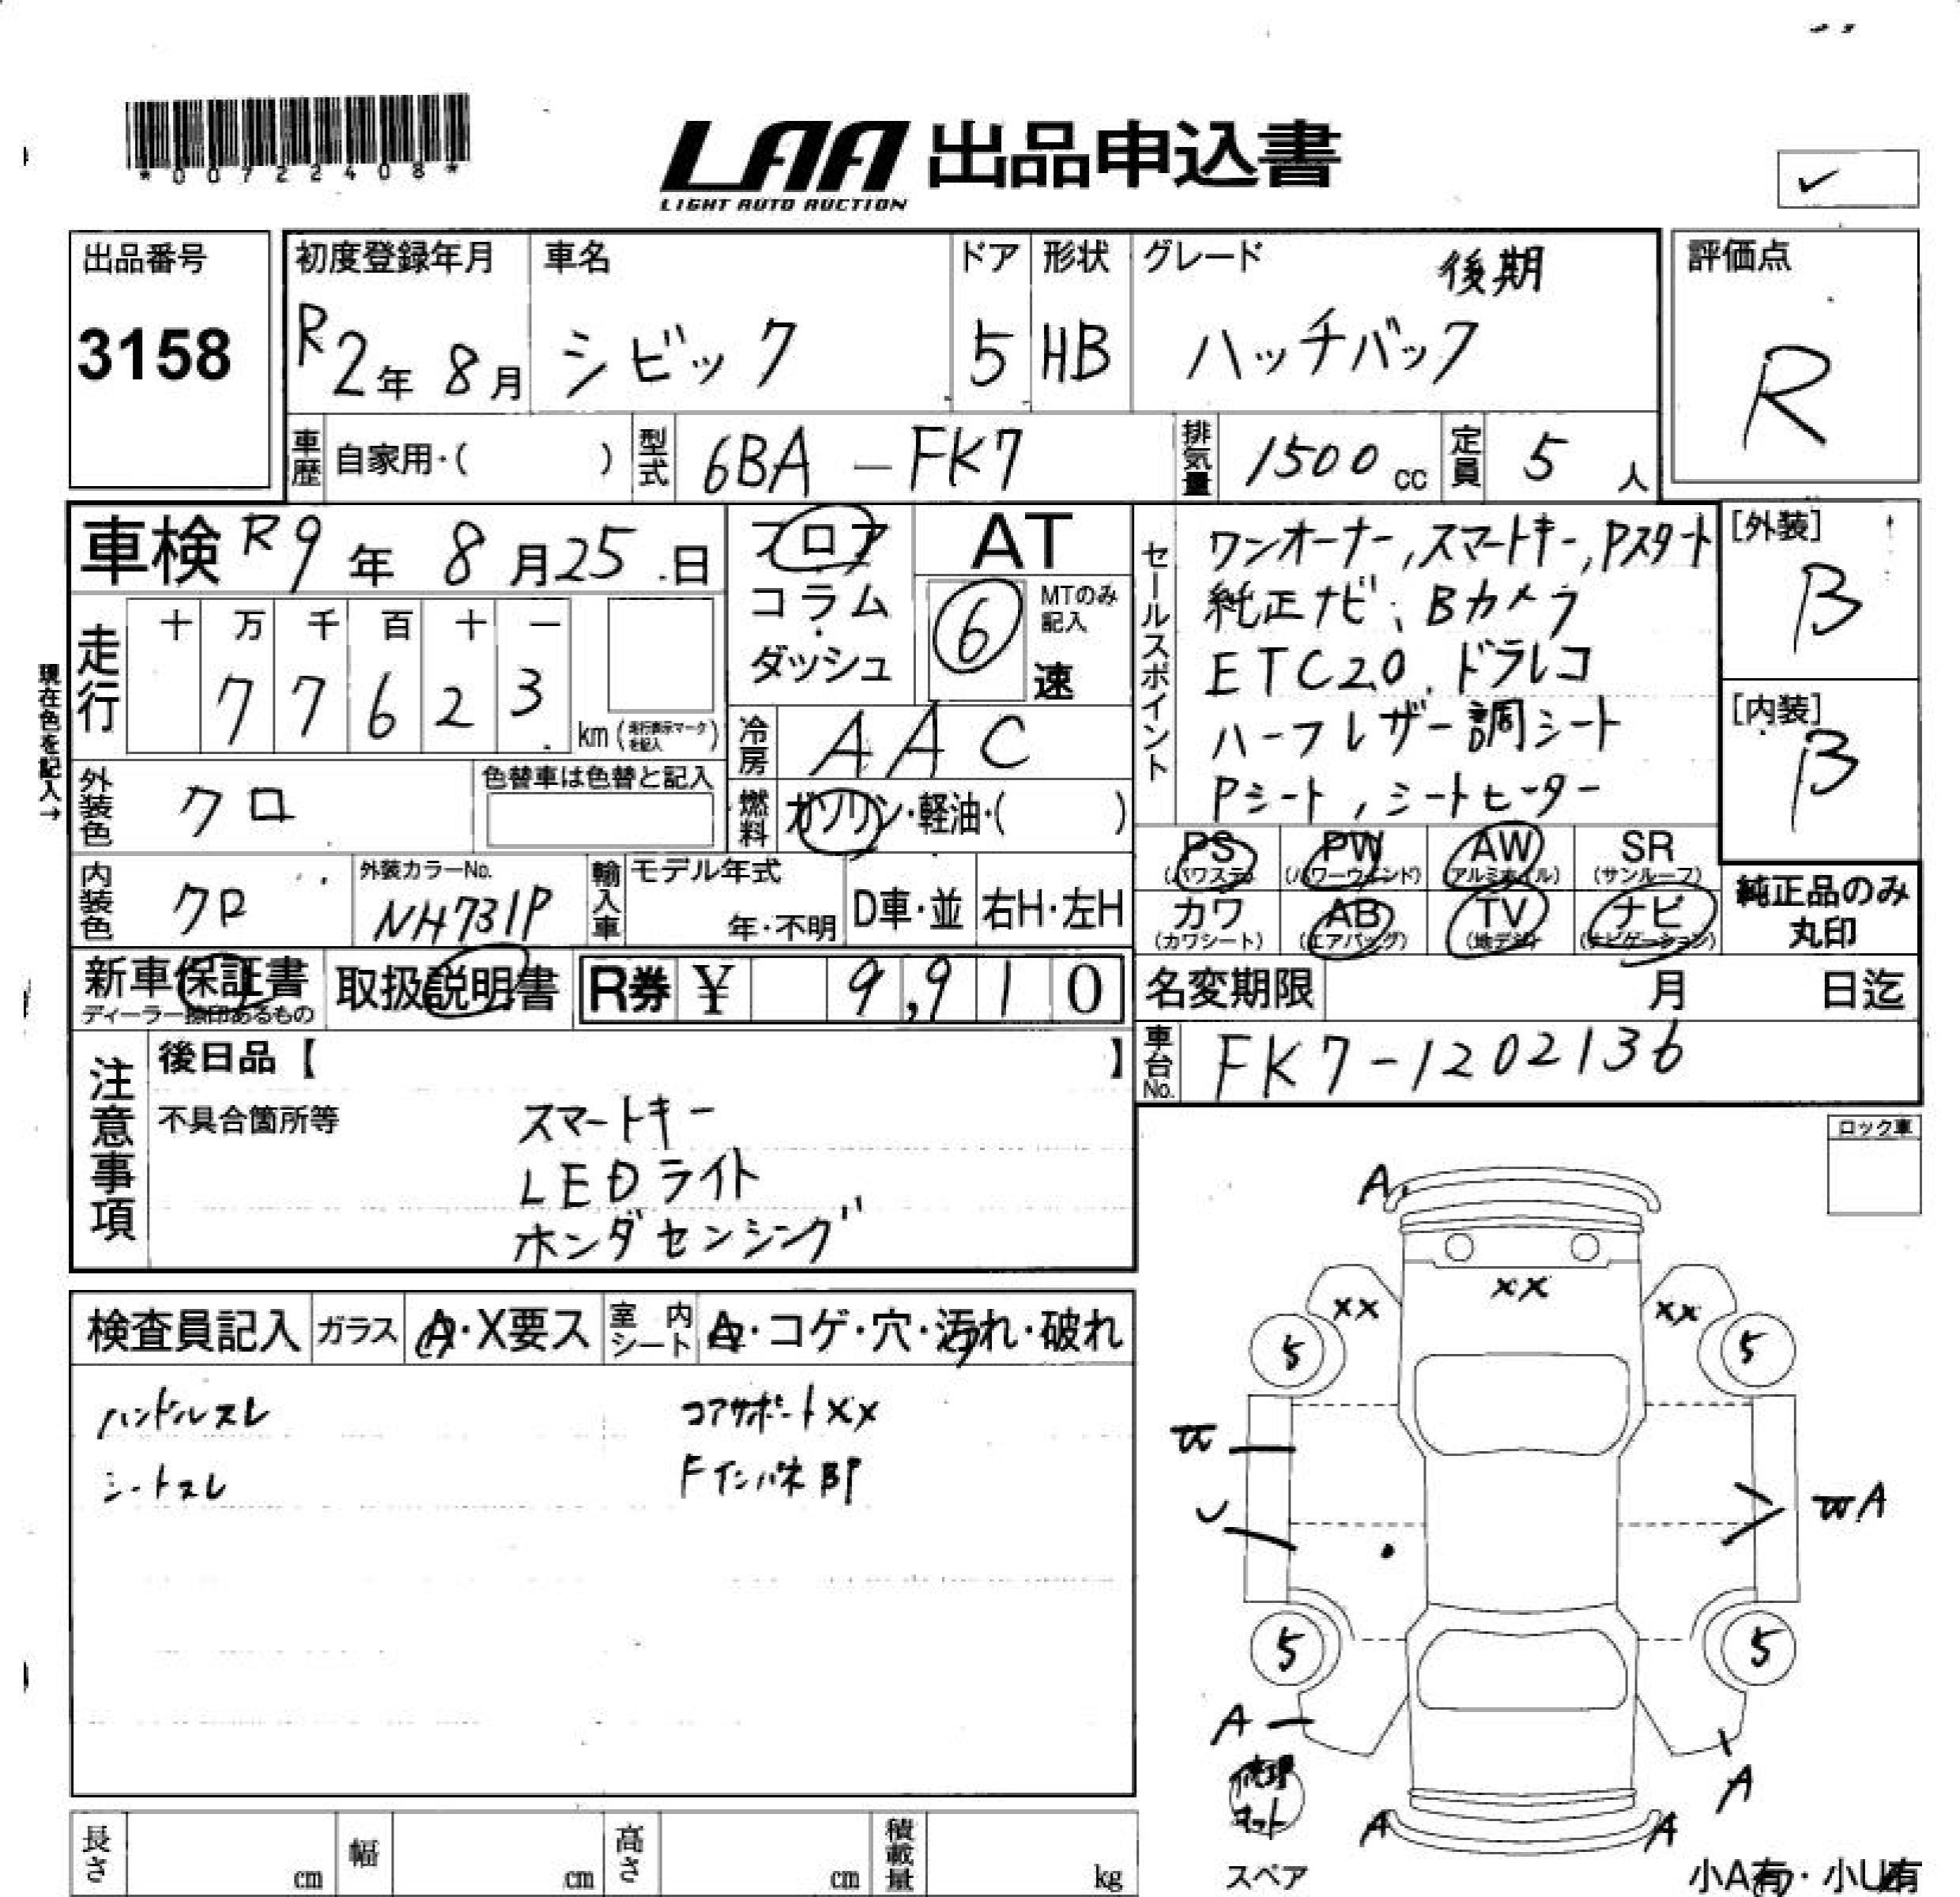 *00722408*
LAA 出品申込書
LIGHT AUTO AUCTION
✓
出品番号
3158
初度登録年月
R2年 8月
車名
シビック
ドア
5
形状
HB
グレード 後期
ハッチバック
評価点
R
車歴 自家用・( )
型式 6BA-FK7
排気量 1500cc
定員 5人
車検 R9年 8月25日
フロア
コラム
・
ダッシュ
AT
⑥
MTのみ
記入
速
走行
十 万 千 百 十 一
7 7 6 2 3
km(走行表示マークを記入)
現在色を記入→
冷房 AAC
燃料 ガソリン・軽油・( )
外装色 クロ
色替車は色替と記入
内装色 クロ
外装カラーNo.
NH731P
輸入車 モデル年式
年・不明
D車・並
右H・左H
セールスポイント
ワンオーナー,スマートキー,Pスタート
純正ナビ,Bカメラ
ETC2.0.ドラレコ
ハーフレザー調シート
Pシート,シートヒーター
[外装]
B
[内装]
B
PS
(パワステ)
PW
(パワーウィンド)
AW
(アルミホイル)
SR
(サンルーフ)
カワ
(カワシート)
AB
(エアバッグ)
TV
(地デジ)
ナビ
(ナビゲーション)
純正品のみ
丸印
新車保証書
ディーラー捺印あるもの
取扱説明書
R券 ¥ 9,910
名変期限 月 日迄
車台No. FK7-1202136
注意事項
後日品【 】
不具合箇所等
スマートキー
LEDライト
ホンダセンシング
ロック車
検査員記入
ガラス A・X要ス
室内シート コゲ・穴・汚れ・破れ
ハンドルスレ
シートスレ
コアサポートXX
Fインパネ即
A
XX
XX
XX
5
5
U
A
5
5
A
修理
キット
A
A
A
スペア
小A有・小U有
長さ cm
幅 cm
高さ cm
積載量 kg